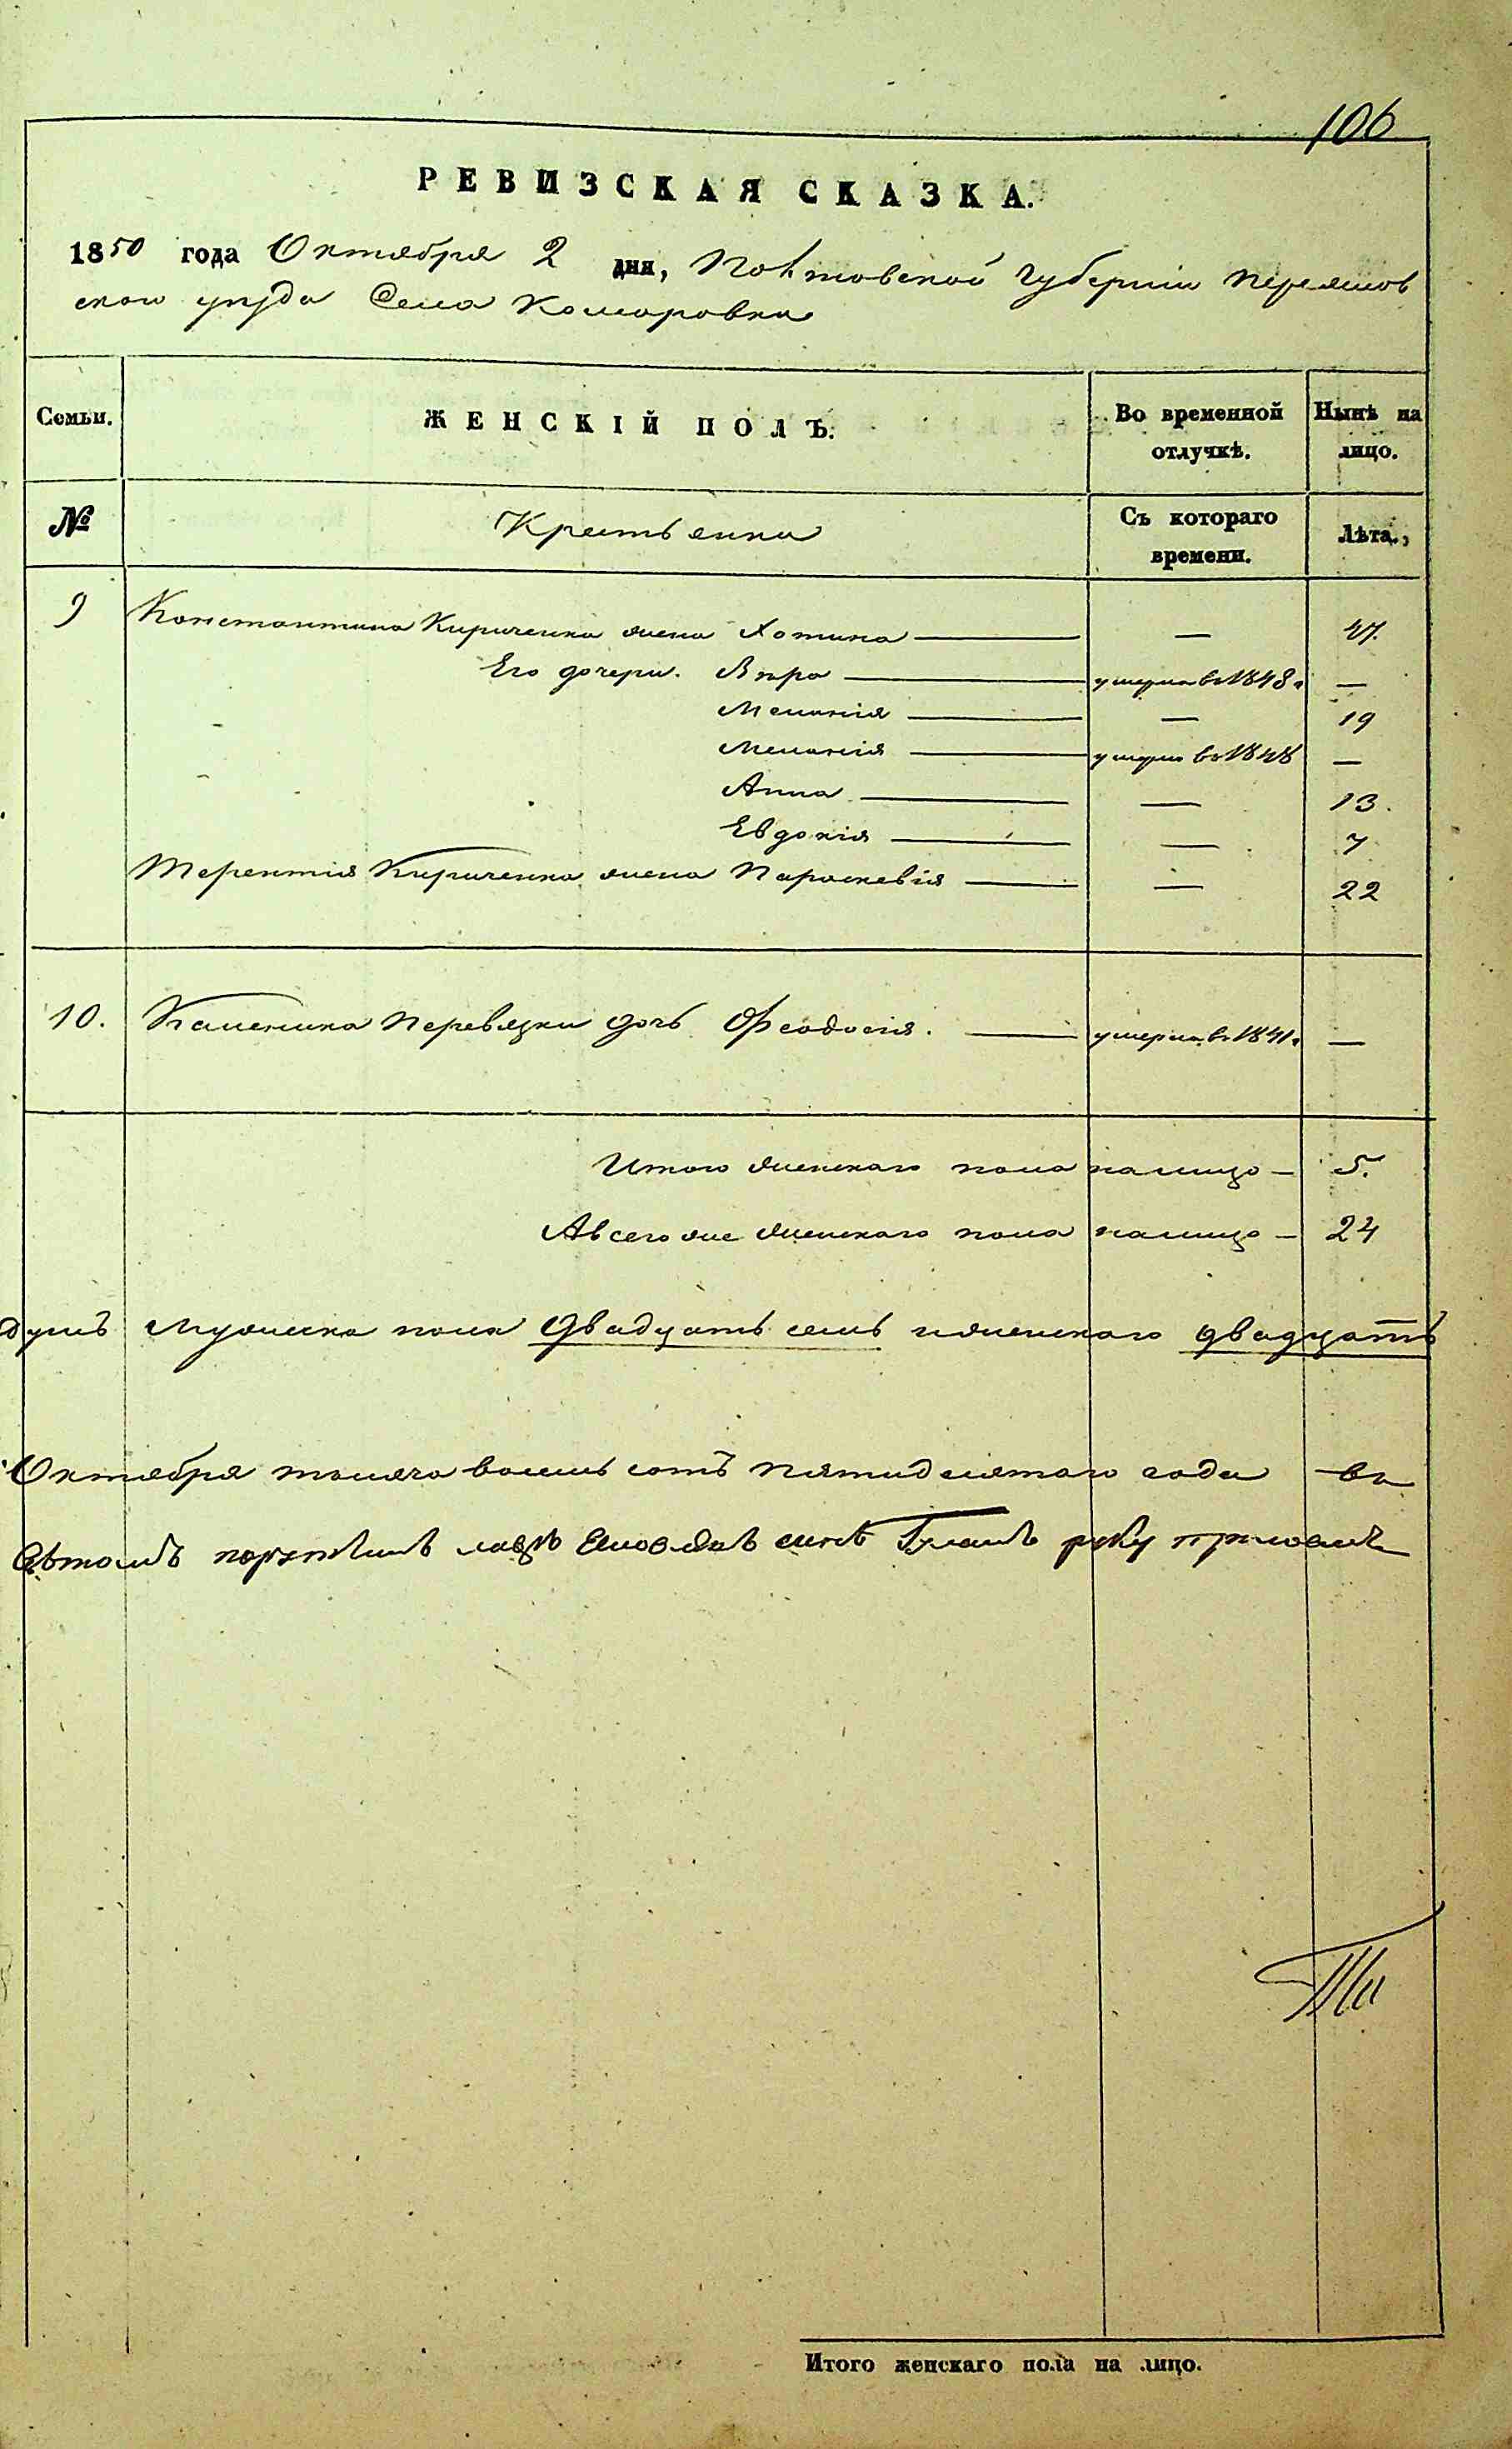 106
РЕВИЗСКАЯ СКАЗКА.
1850 года Октября 2 дня, Полтовской Губерніи Переяслов
ской уѣзда Села Коморовки
Семьи. ЖЕНСКІЙ ПОЛЪ. Во временной отлучкѣ. Нынѣ на лицо.
№ Крестьянки Съ котораго времени. Лѣта.
9 Константина Кириченка жена Хотина — — 47.
Его дочери. Вѣра — умерла въ 1848 —
Меланія — — 19
Меланія — умерла въ 1848 —
Анна — — 13.
Евдокія — — 7
Терентія Кириченка жена Параскевія — — 22
10. Перевязки дочь Феодосія. — умерла въ 1841 —
Итого женскаго пола налицо — 5.
А всего же женскаго пола налицо — 24
душъ мужеска пола двадцать семь и женскаго двадцать
Октября тысяча восемь сотъ пятидесятаго года въ
руку приложилъ
Итого женскаго пола на лицо.